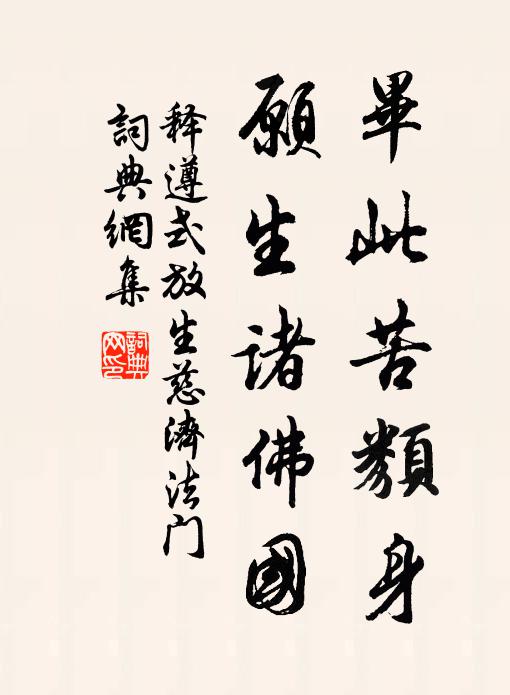 畢此苦類身
願生諸佛國
释遵式放生慈濟法門
詞典網集
詞典網印